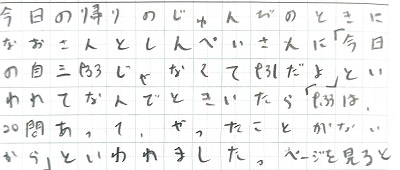 今日の帰りのじゅんびのときに
なおさんとしんぺいさんに「今日
の自三P.33じゃなくてP.31だよ」とい
われてなんでときいたら「P.33は、
20問あって、やったことがない
から」といわれました。ページを見ると